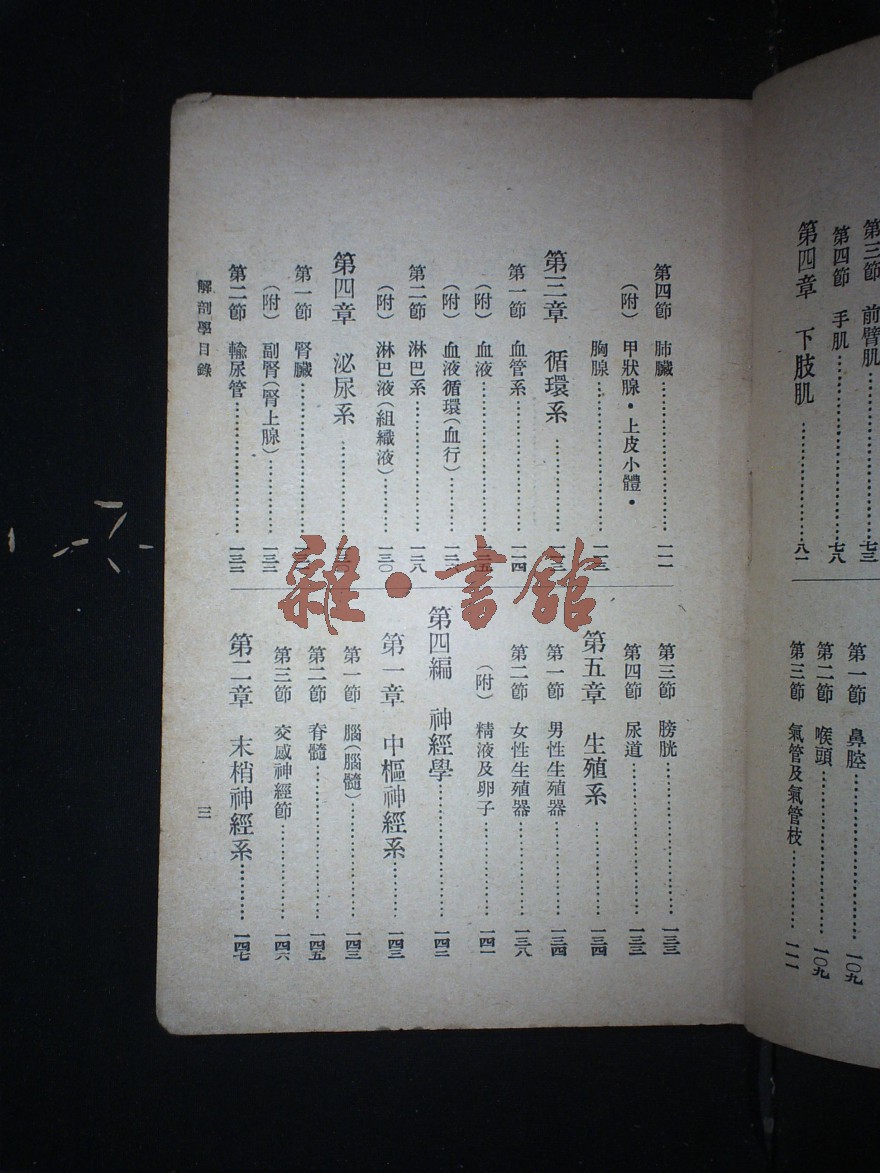 第三節 前臂肌……七三
第四節 手肌……七八
第四章 下肢肌……八一
第一節 鼻腔……一〇九
第二節 喉頭……一〇九
第三節 氣管及氣管枝……一一一
第四節 肺臟……一一一
(附) 甲狀腺・上皮小體・
胸腺……一一三
第三章 循環系……
第一節 血管系……一一四
(附) 血液……
(附) 血液循環(血行)……
第二節 淋巴系……一二八
(附) 淋巴液(組織液)……一三〇
第四章 泌尿系……
第一節 腎臟……
(附) 副腎(腎上腺)……一三二
第二節 輸尿管……一三二
第三節 膀胱……一三三
第四節 尿道……一三三
第五章 生殖系……一三四
第一節 男性生殖器……一三四
第二節 女性生殖器……一三八
(附) 精液及卵子……一四一
第四編 神經學……一四三
第一章 中樞神經系……一四三
第一節 腦(腦髓)……一四三
第二節 脊髓……一四五
第三節 交感神經節……一四六
第二章 末梢神經系……一四七
解剖學目錄 三
雜・書館